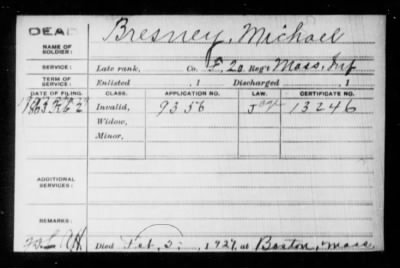 DEAD
Bresney, Michael
NAME OF SOLDIER:
SERVICE: Late rank, Co. F, 20 Reg't Mass. Inf
TERM OF SERVICE: Enlisted , 1 Discharged , 1
DATE OF FILING. CLASS. APPLICATION NO. LAW. CERTIFICATE NO.
Invalid, 9356 13246
Widow,
Minor,
ADDITIONAL SERVICES:
REMARKS:
Died Feb. 2, 1927, at Boston, Mass